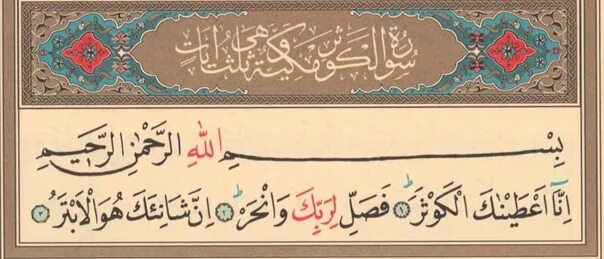 سُورَةُ الْكَوْثَرِ مَكِّيَّةٌ وَهِيَ ثَلٰثُ اٰيَاتٍ
بِسْمِ اللّٰهِ الرَّحْمٰنِ الرَّحٖيمِ
اِنَّٓا اَعْطَيْنَاكَ الْكَوْثَرَؕ ﴿١﴾ فَصَلِّ لِرَبِّكَ وَانْحَرْؕ ﴿٢﴾ اِنَّ شَانِئَكَ هُوَ الْاَبْتَرُ ﴿٣﴾